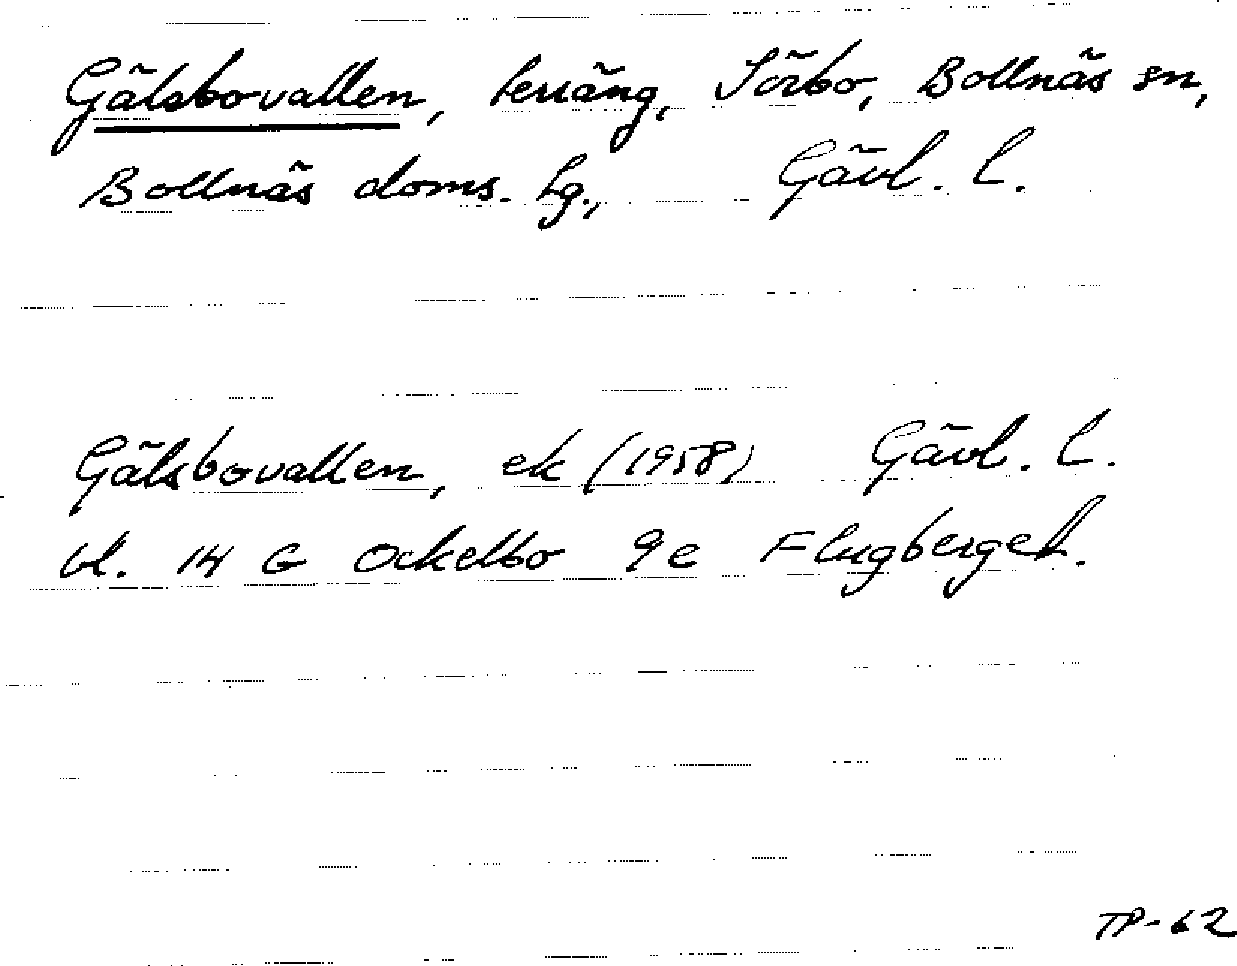 Gälsbovallen, terräng, Sörbo, Bollnäs sn,
Bollnäs doms. tg., Gävl. l.
Gälsbovallen, ek (1958) Gävl. l.
bl. 14 G Ockelbo 9e Flugberget.
TP-62